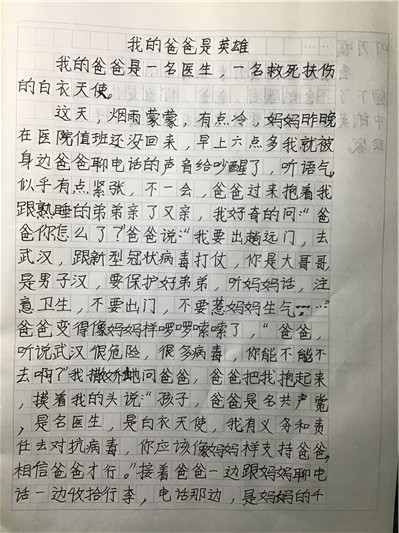 我的爸爸是英雄
我的爸爸是一名医生，一名救死扶伤
的白衣天使。
这天，烟雨蒙蒙，有点冷，妈妈昨晚
在医院值班还没回来，早上六点多我就被
身边爸爸聊电话的声音给吵醒了，听语气
似乎有点紧张，不一会，爸爸过来抱着我
跟熟睡的弟弟亲了又亲，我好奇的问：“爸
爸你怎么了？”爸爸说：“我要出趟远门，去
武汉，跟新型冠状病毒打仗，你是大哥哥
是男子汉，要保护好弟弟，听妈妈话，注
意卫生，不要出门，不要惹妈妈生气……”
爸爸变得像妈妈样啰啰嗦嗦了，“爸爸，
听说武汉很危险，很多病毒，你能不能不
去啊？”我撒娇地问爸爸，爸爸把我抱起来
，摸着我的头说：“孩子，爸爸是名共产党
，是名医生，是白衣天使，我有义务和责
任去对抗病毒，你应该像妈妈样支持爸爸，
相信爸爸才行。”接着爸爸一边跟妈妈聊电
话一边收拾行李，电话那边，是妈妈的千